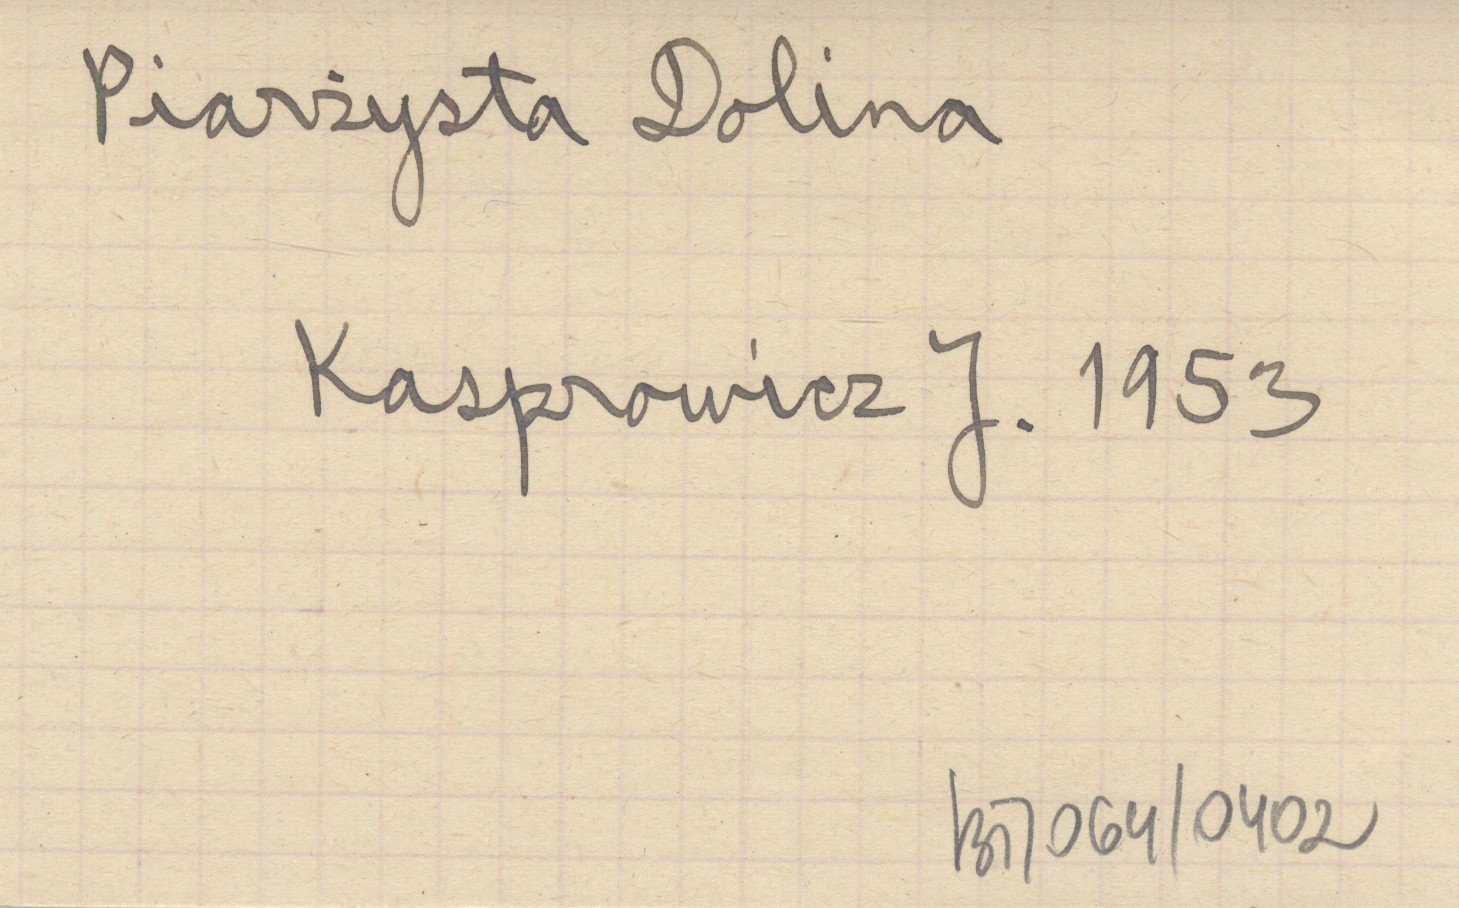 Piarżysta Dolina
Kasprowicz J. 1953
064/0402